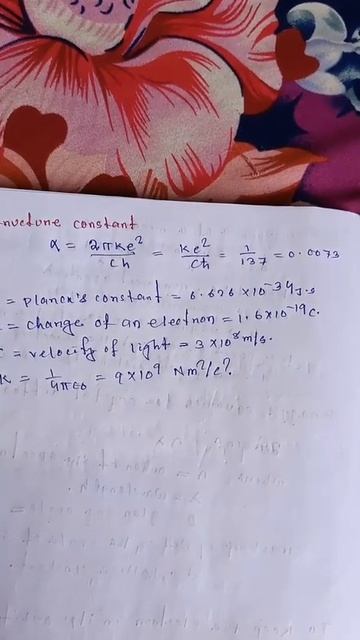 constant
α = 2πke²/ch = ke²/cħ = 1/137 = 0.0073
= planck's constant = 6.626×10⁻³⁴J.s
= charge of an electron = 1.6×10⁻¹⁹c.
c = velocity of light = 3×10⁸m/s.
K = 1/4πε₀ = 9×10⁹ Nm²/c².